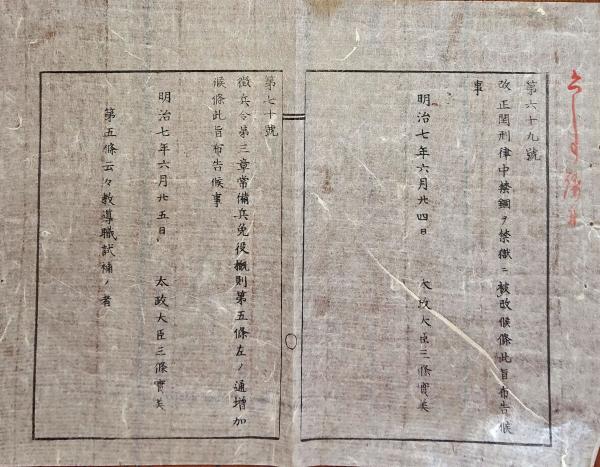 第六十九號
改正閏刑律中禁錮ヲ禁獄ニ被改候條此旨布告候
事
明治七年六月廿四日
太政大臣三條實美
第七十號
徵兵令第三章常備兵免役槪則第五條左ノ通增加
候條此旨布告候事
明治七年六月廿五日
太政大臣三條實美
第五條云々教導職試補ノ者